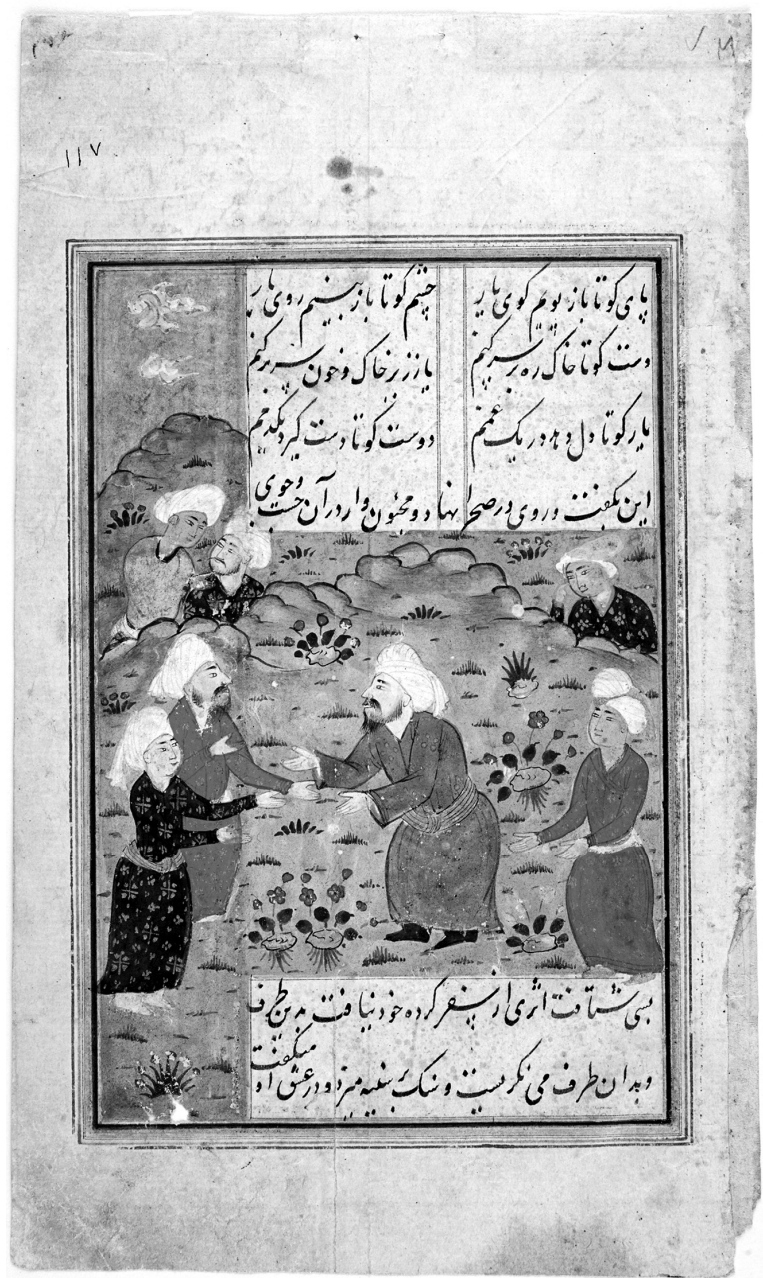 ۱۱۷
پای کو تا باز پویم کوی یار چشم کو تا باز بینم روی یار
دست کو تا خاک ره بر سر کنم یا ز زیر خاک و خون سر بر کنم
یار کو تا دل دهد در یک غمم دوست کو تا دست گیرد یکدمم
این بگفت و روی در صحرا نهاد و مجنون وار در آن جست وجوی
بسی شتافت اثری از سفر کرده خود نیافت بدین طرف
و بدان طرف می نگریست و سنک بر سینه میزد و در عشق او میگفت